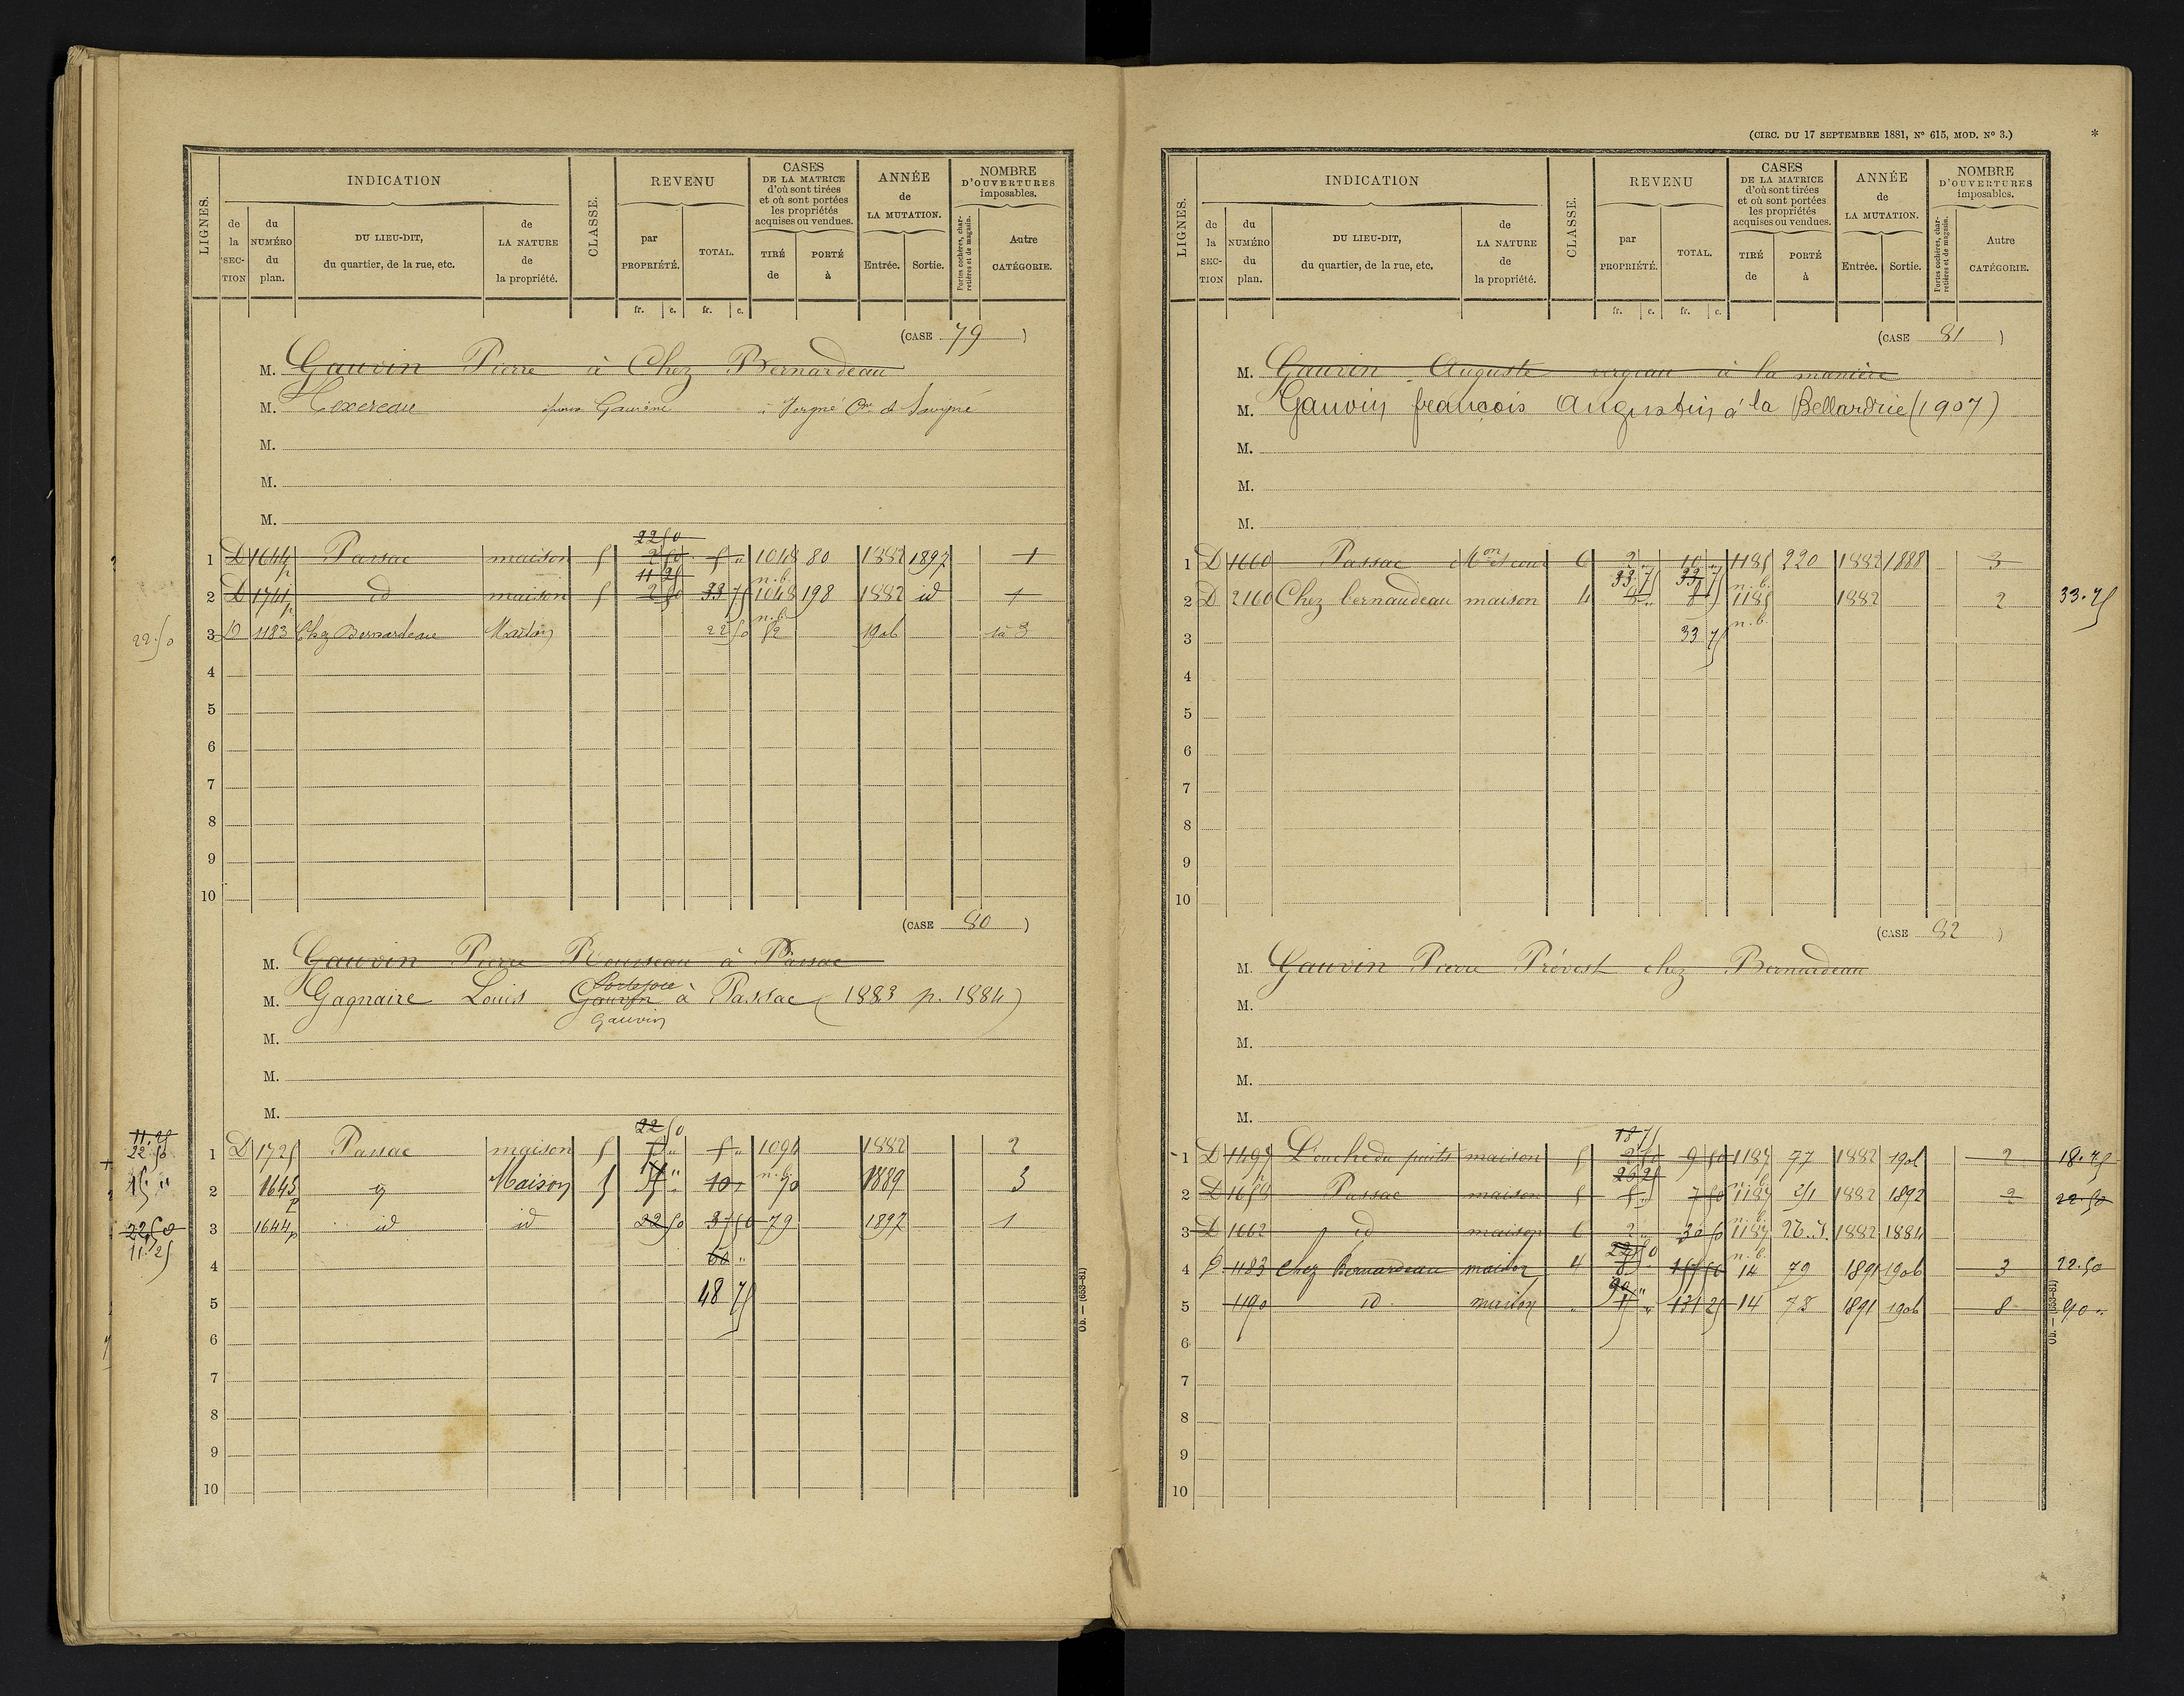 LIGNES.
INDICATION
de la SECTION
du NUMÉRO du plan.
DU LIEU-DIT, du quartier, de la rue, etc.
de LA NATURE de la propriété.
CLASSE.
REVENU
par PROPRIÉTÉ.
TOTAL.
CASES DE LA MATRICE d'où sont tirées et où sont portées les propriétés acquises ou vendues.
TIRÉ de
PORTÉ à
ANNÉE de LA MUTATION.
Entrée.
Sortie.
NOMBRE D'OUVERTURES imposables.
Portes cochères, charretières et de magasin.
Autre CATÉGORIE.
fr. c. fr. c.
(CASE 79)
M. Gauvin Pierre à Chez Bernardeau
M. Texereau épouse Gauvine à Jergné Cne de Savigné
M.
M.
M.
22 50
1 D 1644 p Passac maison 5 2 50 5 " 1048 80 1882 1897 1
11 25 n.b.
2 D 1741 p id maison 5 2 50 33 75 1048 198 1882 id 1
n.b.
22.50 3 D 1183 Chez Bernardeau Maison 22 50 82 1906 3
4
5
6
7
8
9
10
(CASE 80)
M. Gauvin Pierre Rousseau à Passac
Portejoie
M. Gagnaire Louis Gauvin à Passac (1883 p. 1884)
Gauvin
M.
M.
M.
11.25
22 50
22.50 1 D 1725 Passac maison 5 5 " 5 " 1094 1882 2
15 " n.b.
15 " 2 1643 p Maison 5 5 " 10 " 70 1889 3
22.50 3 1644 p id id 22 50 37 50 79 1897 1
11.25
4 60 "
5 48 75
6
7
8
9
10
Ob. — (653-81)
(CIRC. DU 17 SEPTEMBRE 1881, No 615, MOD. No 3.)
*
LIGNES.
INDICATION
de la SECTION
du NUMÉRO du plan.
DU LIEU-DIT, du quartier, de la rue, etc.
de LA NATURE de la propriété.
CLASSE.
REVENU
par PROPRIÉTÉ.
TOTAL.
CASES DE LA MATRICE d'où sont tirées et où sont portées les propriétés acquises ou vendues.
TIRÉ de
PORTÉ à
ANNÉE de LA MUTATION.
Entrée.
Sortie.
NOMBRE D'OUVERTURES imposables.
Portes cochères, charretières et de magasin.
Autre CATÉGORIE.
fr. c. fr. c.
(CASE 81)
M. Gauvin Auguste à la manière
M. Gauvin françois Augustin à la Bellardrie (1907)
M.
M.
M.
1 D 1660 Passac Mon et cour 6 2 " 10 " 1185 220 1882 1888 3
33 75 33 75 n.b.
2 D 2160 Chez bernaudeau maison 4 8 " 8 " 1185 1882 2 33.75
n.b.
3 33 75
4
5
6
7
8
9
10
(CASE 82)
M. Gauvin Pierre Prévost chez Bernardeau
M.
M.
M.
M.
18 75
1 D 1497 L'ouche du puits maison 5 2 50 9 50 1187 77 1882 1901 2 18.75
26 25 n.b.
2 D 1654 Passac maison 5 5 " 7 50 1187 1882 1892 2 22 50
n.b.
3 D 1662 id maison 6 2 " 30 50 1187 1882 1884
22 50 n.b.
4 D 1183 chez Bernardeau maison 4 8 " 14 79 1891 1906 3 22.50
90 "
5 1190 id. maison " 131 25 14 78 1891 1906 8 90 "
6
7
8
9
10
Ob. — (653-81)